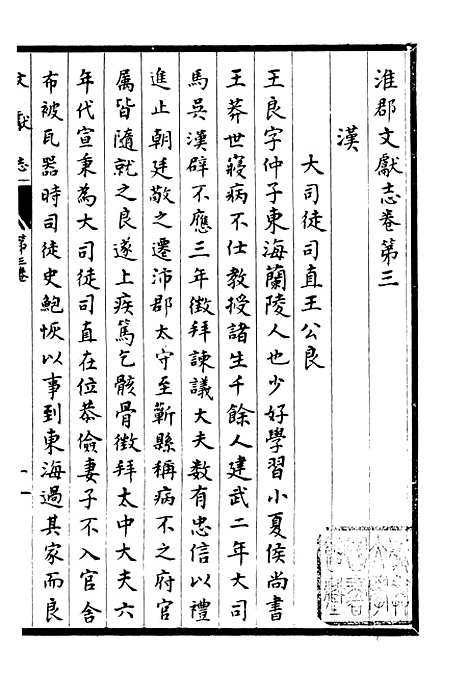 淮郡文獻志卷第三
漢
大司徒司直王公良
王良字仲子東海蘭陵人也少好學習小夏侯尚書
王莽世寢病不仕教授諸生千餘人建武二年大司
馬吳漢辟不應三年徵拜諫議大夫數有忠信以禮
進止朝廷敬之遷沛郡太守至蘄縣稱病不之府官
属皆隨就之良遂上疾篤乞骸骨徵拜太中大夫六
年代宣秉為大司徒司直在位恭儉妻子不入官舍
布被瓦器時司徒史鮑恢以事到東海過其家而良
文獻志 第三卷 一